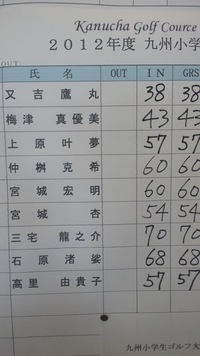 Kanucha Golf Cource
2012年度 九州小学
OUT:
氏 名 OUT IN GRS
又吉 鷹丸 38 38
梅津 真優美 43 43
上原 叶夢 57 57
仲桝 克希 60 60
宮城 宏明 60 60
宮城 杏 54 54
三宅 龍之介 70 70
石原 渚娑 68 68
高里 由貴子 57 57
九州小学生ゴルフ大